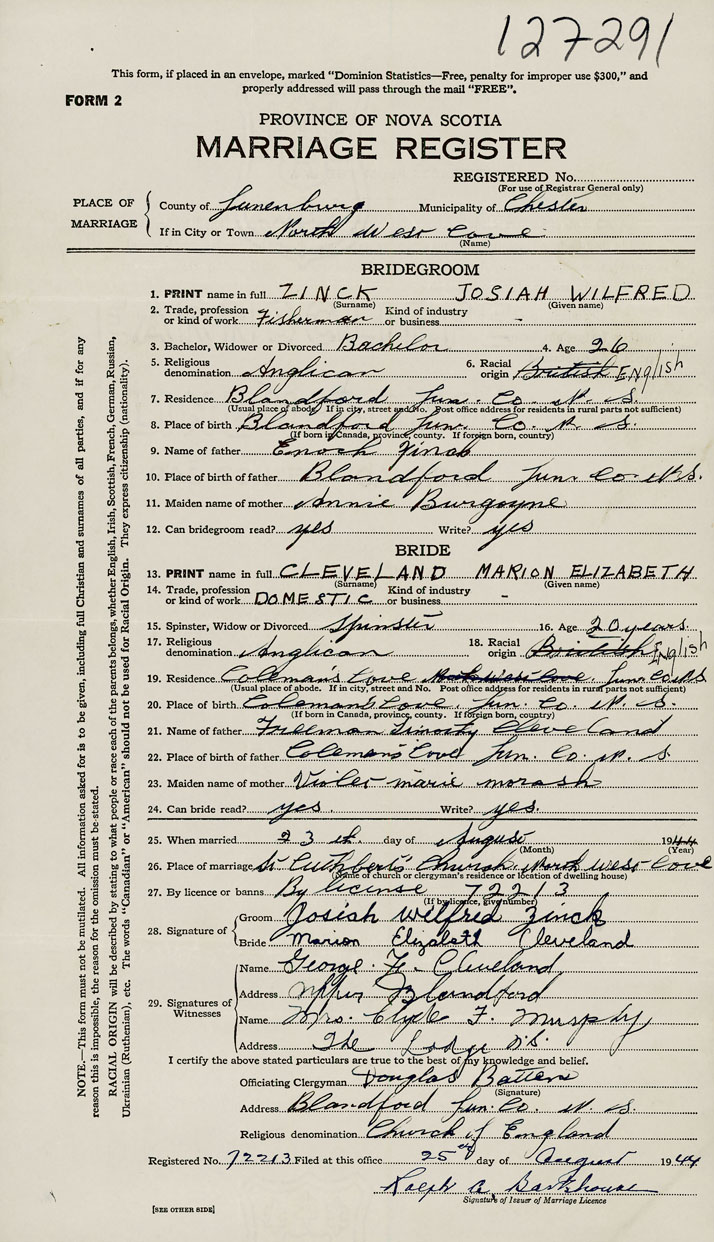 127291
This form, if placed in an envelope, marked "Dominion Statistics—Free, penalty for improper use $300," and
properly addressed will pass through the mail "FREE".
FORM 2
PROVINCE OF NOVA SCOTIA
MARRIAGE REGISTER
REGISTERED No.
(For use of Registrar General only)
PLACE OF MARRIAGE
County of Lunenburg Municipality of Chester
If in City or Town North West Cove
(Name)
BRIDEGROOM
1. PRINT name in full ZINCK JOSIAH WILFRED
(Surname) (Given name)
2. Trade, profession or kind of work Fisherman Kind of industry or business -
3. Bachelor, Widower or Divorced Bachelor 4. Age 26
5. Religious denomination Anglican 6. Racial origin British English
7. Residence Blandford Lun. Co. N. S.
(Usual place of abode. If in city, street and No. Post office address for residents in rural parts not sufficient)
8. Place of birth Blandford Lun. Co. N. S.
(If born in Canada, province, county. If foreign born, country)
9. Name of father Enoch Zinck
10. Place of birth of father Blandford Lun. Co. N.S.
11. Maiden name of mother Annie Burgoyne
12. Can bridegroom read? yes Write? yes
BRIDE
13. PRINT name in full CLEVELAND MARION ELIZABETH
(Surname) (Given name)
14. Trade, profession or kind of work DOMESTIC Kind of industry or business -
15. Spinster, Widow or Divorced Spinster 16. Age 20 years.
17. Religious denomination Anglican 18. Racial origin British English
19. Residence Coleman's Cove North West Cove Lun. Co. N.S.
(Usual place of abode. If in city, street and No. Post office address for residents in rural parts not sufficient)
20. Place of birth Coleman's Cove, Lun. Co. N. S.
(If born in Canada, province, county. If foreign born, country)
21. Name of father Freeman Timothy Cleveland
22. Place of birth of father Coleman's Cove Lun. Co. N. S
23. Maiden name of mother Violet marie morash
24. Can bride read? yes. Write? yes.
25. When married 23 th. day of August 1944
(Month) (Year)
26. Place of marriage St Cuthbert's Church, North West Cove
(Name of church or clergyman's residence or location of dwelling house)
27. By licence or banns By license 72213
(If by licence, give number)
28. Signature of
Groom Josiah Wilfred Zinck
Bride Marion Elizabeth Cleveland
29. Signatures of Witnesses
Name George F. Cleveland
Address Upper Blandford
Name Mrs. Clyde F. Murphy
Address The Lodge N.S.
I certify the above stated particulars are true to the best of my knowledge and belief.
Officiating Clergyman Douglas Batten
(Signature)
Address Blandford Lun. Co. N. S.
Religious denomination Church of England
Registered No. 72213 Filed at this office 25th day of August 1944
Ralph A. Barkhouse
Signature of Issuer of Marriage Licence
[SEE OTHER SIDE]
NOTE.—This form must not be mutilated. All information asked for is to be given, including full Christian and surnames of all parties, and if for any
reason this is impossible, the reason for the omission must be stated.
RACIAL ORIGIN will be described by stating to what people or race each of the parents belongs, whether English, Irish, Scottish, French, German, Russian,
Ukrainian (Ruthenian), etc. The words "Canadian" or "American" should not be used for Racial Origin. They express citizenship (nationality).